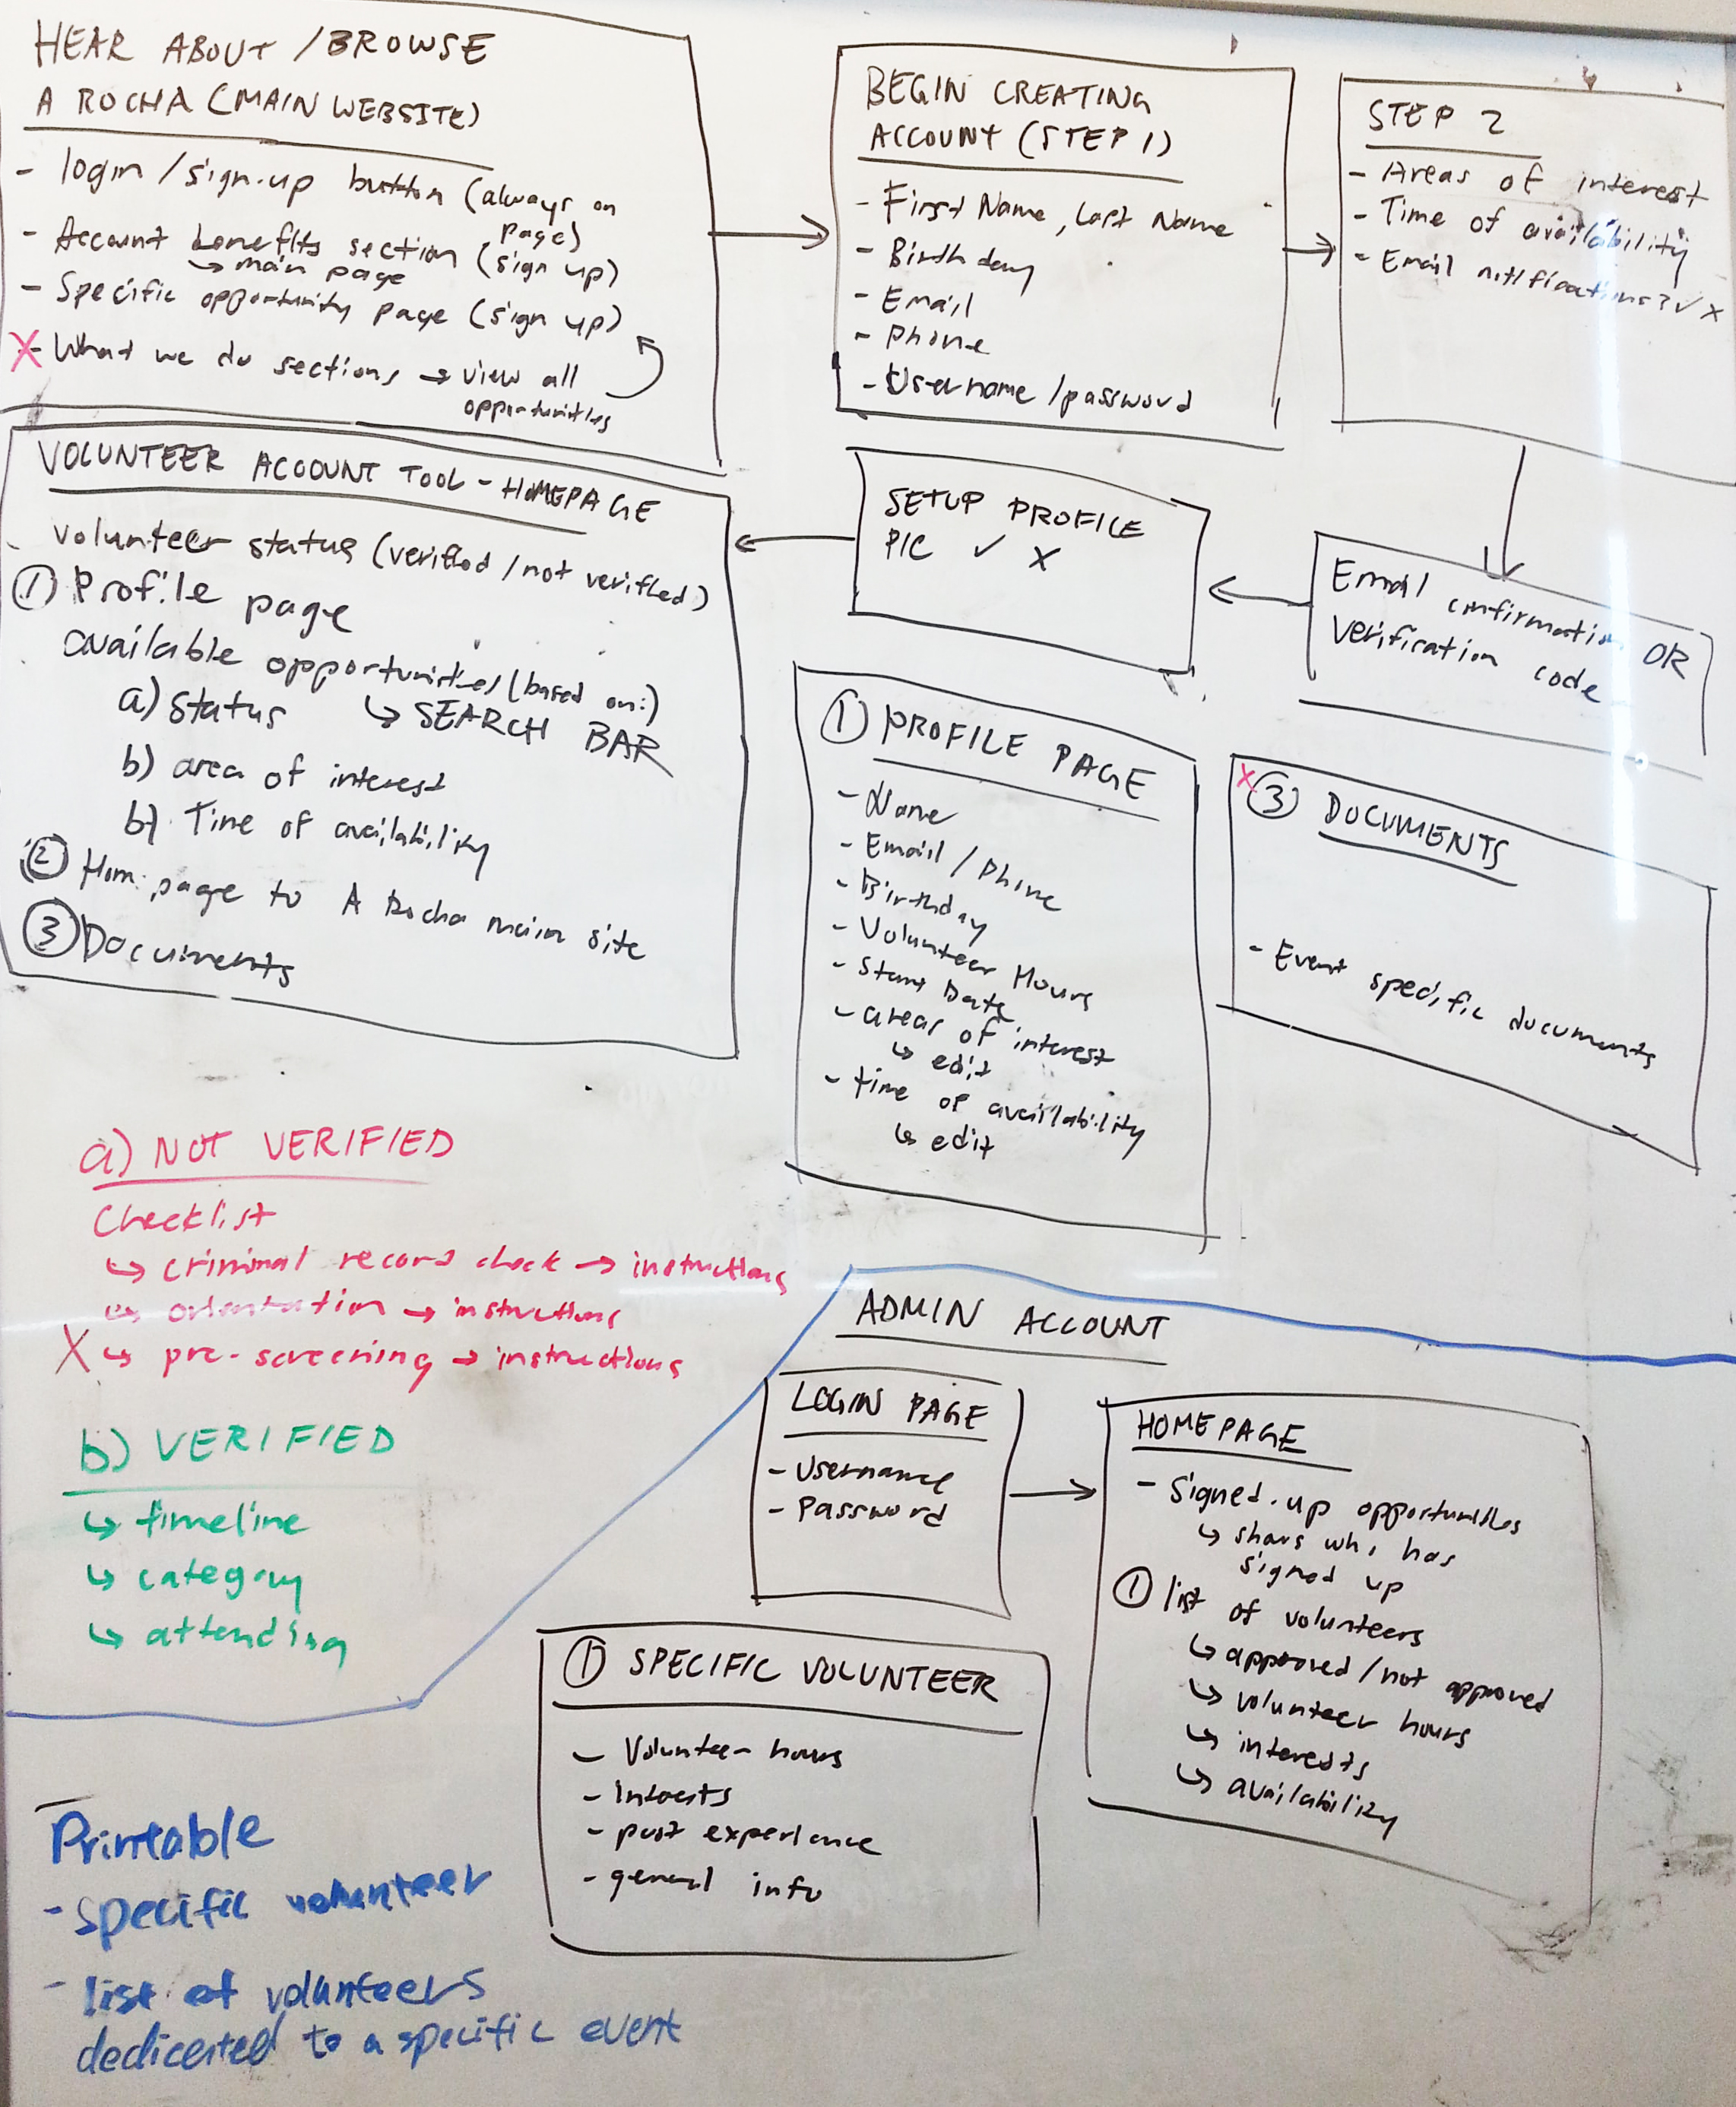 HEAR ABOUT / BROWSE
A ROCHA (MAIN WEBSITE)
- login / sign-up button (always on page)
- Account benefits section (sign up)
↳ main page
- Specific opportunity page (sign up)
X - What we do sections → view all
opportunities
BEGIN CREATING
ACCOUNT (STEP 1)
- First Name, Last Name
- Birthday
- Email
- Phone
- Username / password
STEP 2
- Areas of interest
- Time of availability
- Email notifications? ✓ X
Email confirmation OR
verification code
SETUP PROFILE
PIC ✓ X
VOLUNTEER ACCOUNT TOOL - HOMEPAGE
- volunteer status (verified / not verified)
① Profile page
available opportunities (based on:)
↳ SEARCH BAR
a) status
b) area of interest
b) Time of availability
② Home page to A Rocha main site
③ Documents
① PROFILE PAGE
- Name
- Email / Phone
- Birthday
- Volunteer Hours
- Start Date
- areas of interest
↳ edit
- time of availability
↳ edit
X ③ DOCUMENTS
- Event specific documents
a) NOT VERIFIED
Checklist
↳ criminal record check → instructions
↳ orientation → instructions
X ↳ pre-screening → instructions
b) VERIFIED
↳ timeline
↳ category
↳ attending
ADMIN ACCOUNT
LOGIN PAGE
- Username
- Password
HOMEPAGE
- Signed-up opportunities
↳ shows who has
signed up
① list of volunteers
↳ approved / not approved
↳ volunteer hours
↳ interests
↳ availability
① SPECIFIC VOLUNTEER
- Volunteer hours
- Interests
- past experience
- general info
Printable
- specific volunteer
- list of volunteers
dedicated to a specific event